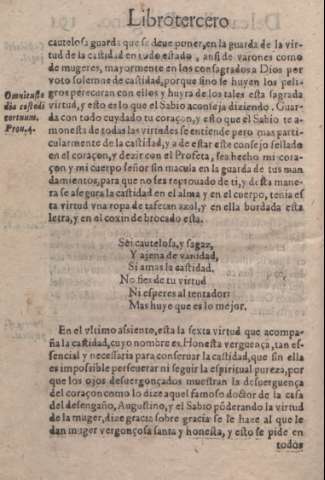 Libro tercero
cautelosa guarda que se deue poner, en la guarda de la vir-
tud de la castidad en todo estado, ansi de varones como
de mugeres, mayormente en los consagrados a Dios por
voto solemne de castidad, porque sino se huyen los peli-
gros pereceran con ellos y huyra de los tales esta sagrada
Omni custo
dia custodi
cor tuum.
Prou. 4.
virtud, y esto es lo que el Sabio aconseja diziendo. Guar-
da con todo cuydado tu coraçon, y esto que el Sabio te a-
monesta de todas las virtudes se entiende pero mas parti-
cularmente de la castidad, y a de estar este consejo sellado
en el coraçon, y dezir con el Profeta, sea hecho mi cora-
çon y mi cuerpo señor sin macula en la guarda de tus man
damientos, para que no sea reprouado de ti, y desta mane
ra se asegura la castidad en el alma y en el cuerpo, tenia es
ta virtud vna ropa de tafetan azul, y en ella bordada esta
letra, y en el coxin de brocado esta.
Sèi cautelosa, y sagaz,
Y agena de vanidad,
Si amas la castidad.
No fies de tu virtud
Ni esperes al tentador:
Mas huye que es lo mejor.
En el vltimo asiento, esta la sexta virtud que acompa-
ña la castidad, cuyo nombre es. Honesta verguença, tan es-
sencial y necessaria para conseruar la castidad, que sin ella
es impossible perseuerar ni seguir la espiritual pureza, por
que los ojos desuergonçados muestran la desuerguença
del coraçon como lo dize aquel famoso doctor de la casa
del desengaño, Augustino, y el Sabio põderando la virtud
de la muger, dize gracia sobre gracia se le haze al que le
dan muger vergonçosa santa y honesta, y esto se pide en
todos